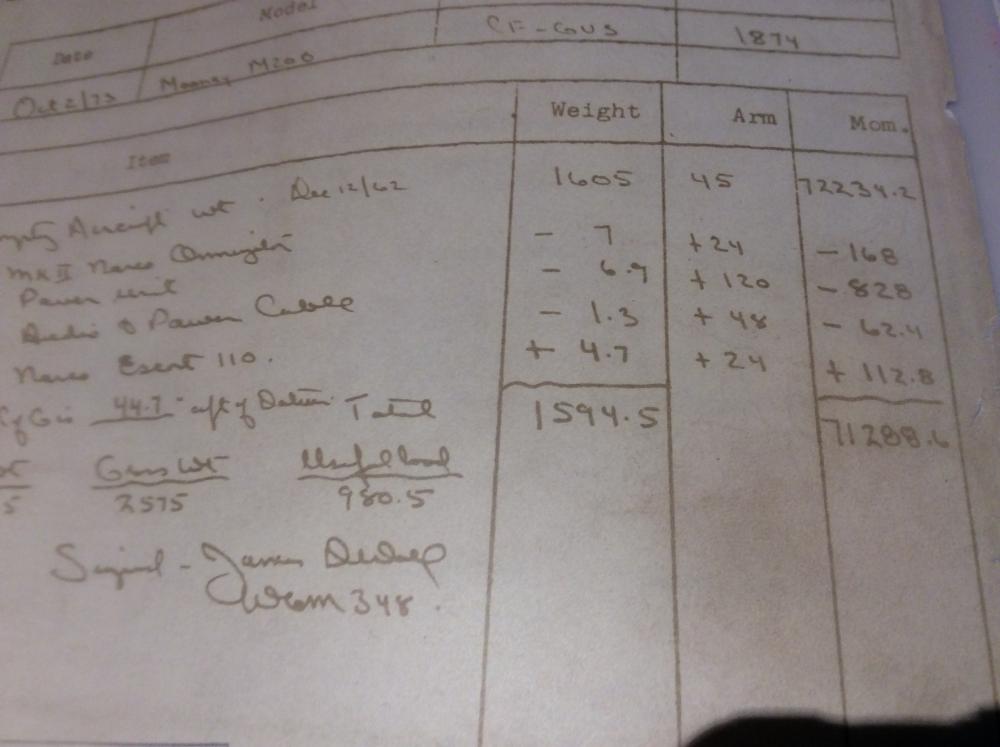 Model
Date CF-GUS 1874
Oct 2/73 Mooney M20C
Item Weight Arm Mom.
Empty Aircraft wt. Dec 12/62 1605 45 72234.2
MK II Narco Omnigator - 7 +24 - 168
Power unit - 6.9 + 120 - 828
Audio & Power Cable - 1.3 + 48 - 62.4
Narco Escort 110. + 4.7 + 24 + 112.8
C of G is 44.7" aft of Datum Total 1594.5 71288.6
Gross Wt Useful load
5 2575 980.5
Signed - James
348.